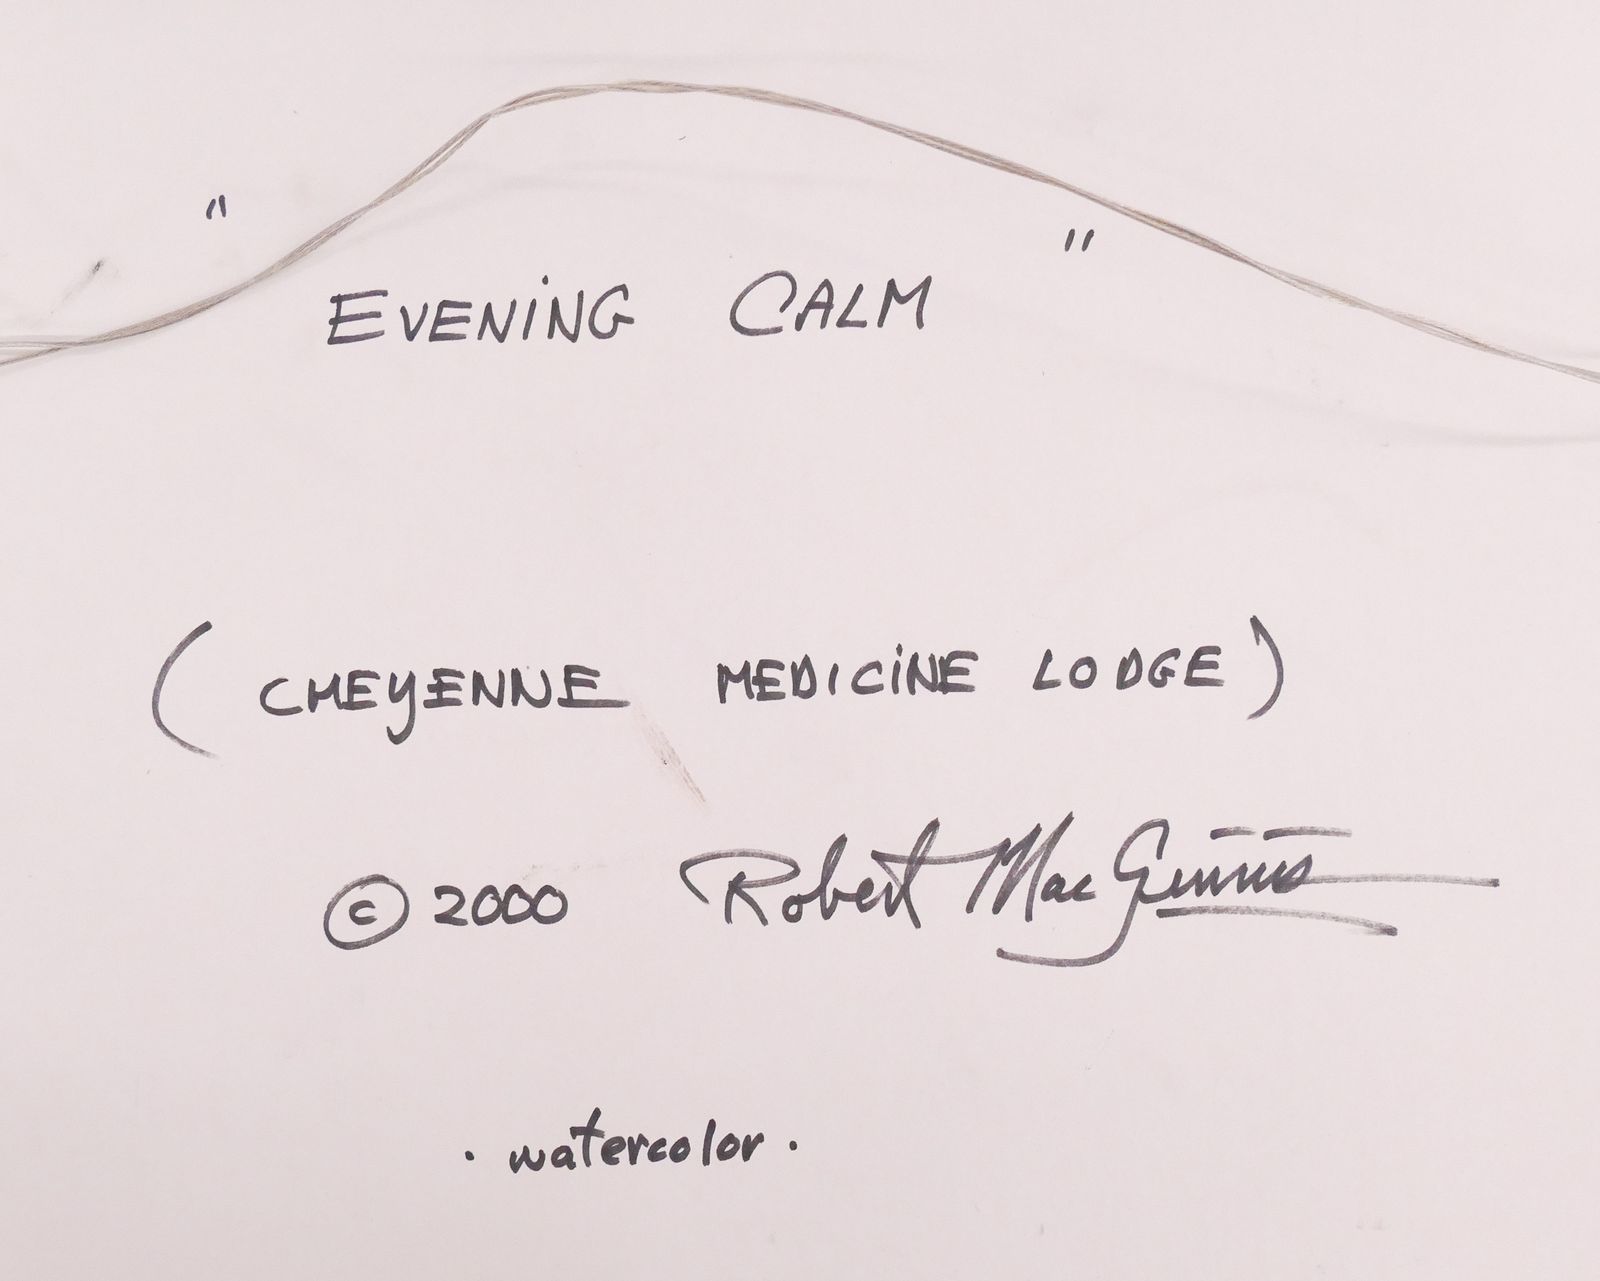 "EVENING CALM"
(CHEYENNE MEDICINE LODGE)
© 2000 Robert MacGinnis
· watercolor ·